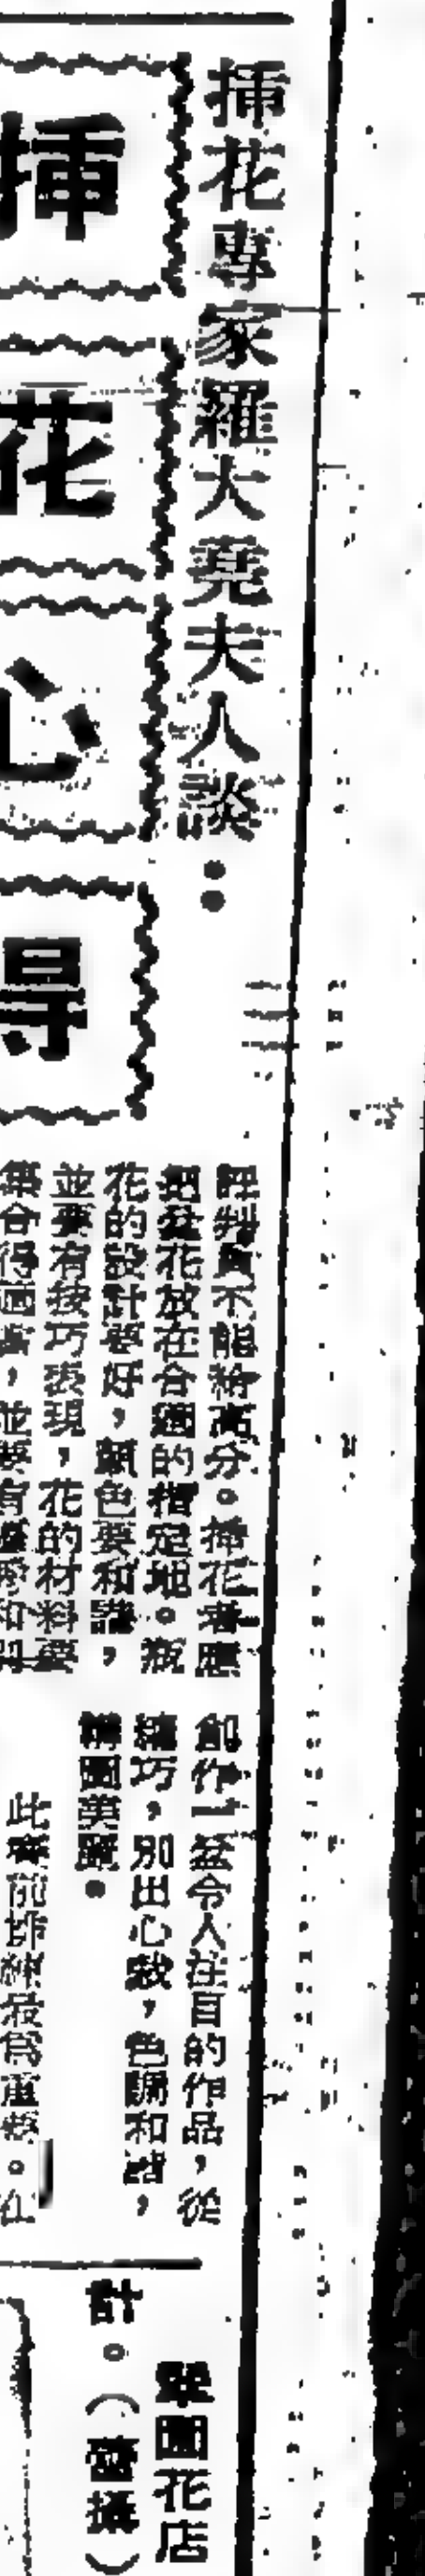 插花專家羅大堯夫人談：
插花心得
評判員不能給高分。插花者應
把盆花放在合適的指定地。瓶
花的設計要好，顏色要和諧，
並要有技巧表現，花的材料要
集合得適宜，並要有
創作一盆令人注目的作品，從
纖巧，別出心裁，色調和諧，
構圖美麗。
此賽前排練最爲重要。在
翠園花店
計。（攝）